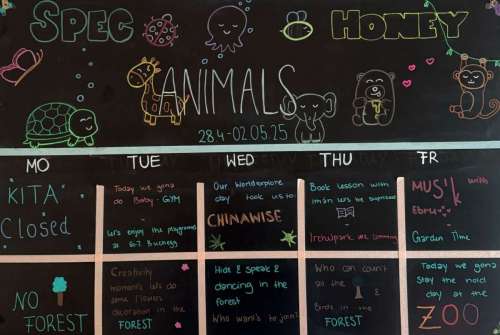 SPEC HONEY
ANIMALS
28.4-02.05.25
MO TUE WED THU FR
KITA
Closed
Today we gona
do Baby-GYM
-
Let's enjoy the playground
at Buchegg
Our Worldexplore
day took us to
CHINAWISE
Book lesson with
Irchelpark we comming
MUSIK with
Ebru
Garden Time
NO
FOREST
Creativity
moments let's do
some flowers
decoration in the
FOREST
Hide & speak &
dancing in the
forest
Who wants to join?
Who can count
so the
&
Birds in the
FOREST
Today we gona
Stay the hold
day at the
ZOO